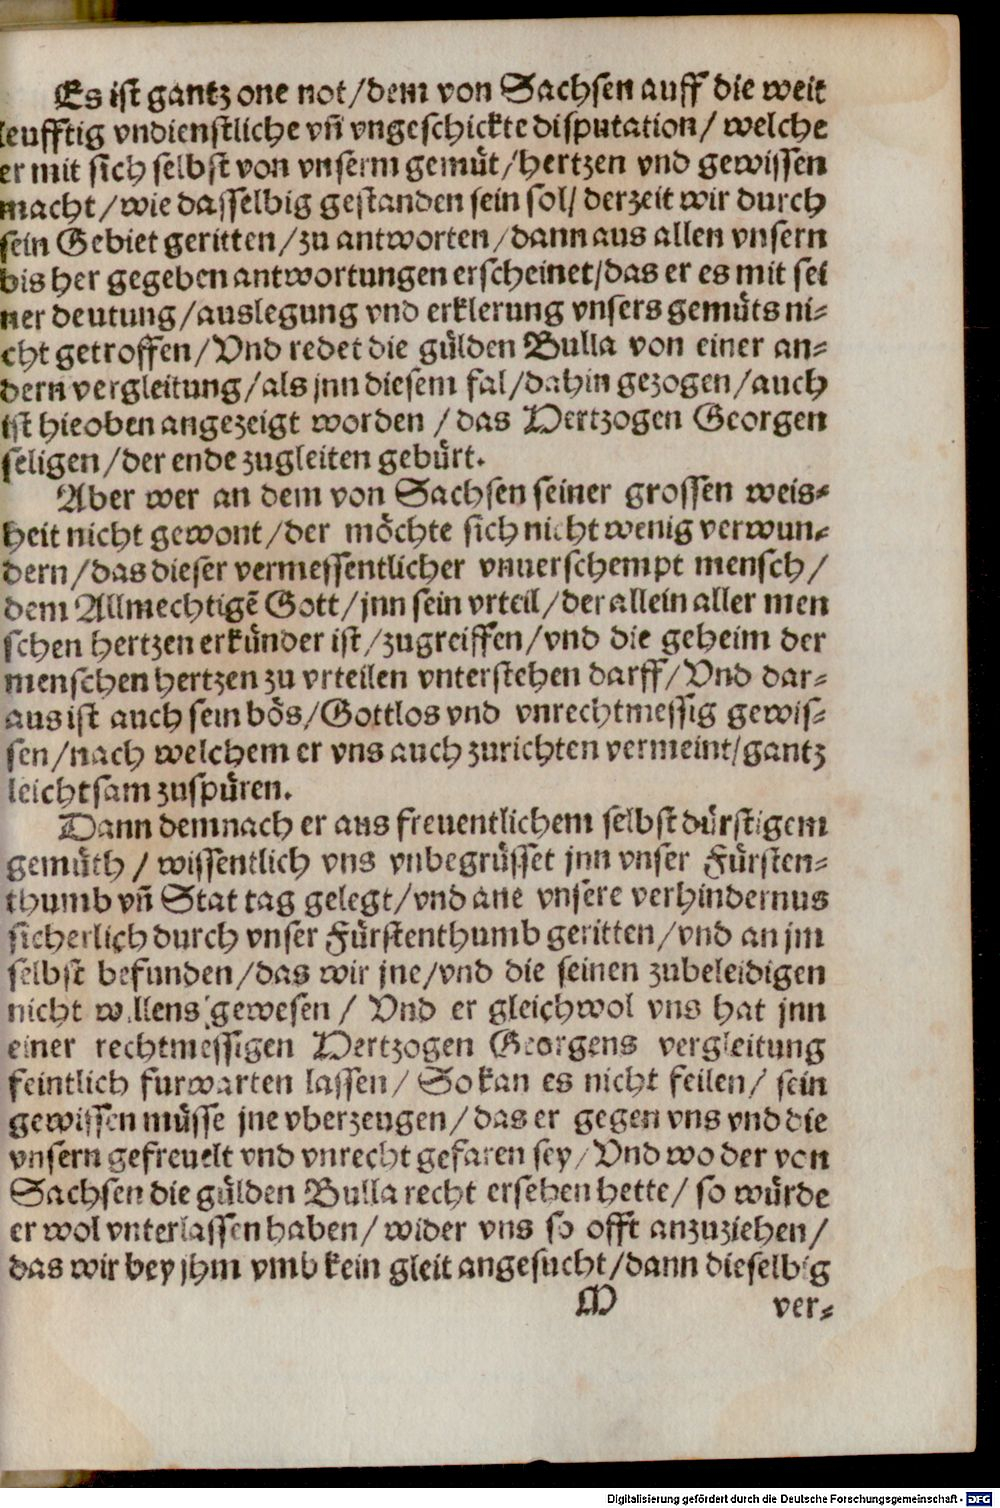 Es ist gantz one not/dem von Sachsen auff die weit
leufftig vndienstliche vñ vngeschickte disputation/ welche
er mit sich selbst von vnserm gemüt/hertzen vnd gewissen
macht/wie dasselbig gestanden sein sol/ derzeit wir durch
sein Gebiet geritten/zu antworten/dann aus allen vnsern
bis her gegeben antwortungen erscheinet/das er es mit sei
ner deutung/auslegung vnd erklerung vnsers gemüts ni-
cht getroffen/Vnd redet die gülden Bulla von einer an-
dern vergleitung/als jnn diesem fal/dahin gezogen/auch
ist hieoben angezeigt worden /das Hertzogen Georgen
seligen/der ende zugleiten gebürt.
Aber wer an dem von Sachsen seiner grossen weis-
heit nicht gewont/der möchte sich nicht wenig verwun-
dern/das dieser vermessentlicher vnuerschempt mensch/
dem Allmechtigẽ Gott/jnn sein vrteil/der allein aller men
schen hertzen erkünder ist/zugreiffen/vnd die geheim der
menschen hertzen zu vrteilen vnterstehen darff/Vnd dar-
aus ist auch sein bös/Gottlos vnd vnrechtmessig gewis-
sen/nach welchem er vns auch zurichten vermeint/gantz
leichtsam zuspüren.
Dann demnach er aus freuentlichem selbst dürstigem
gemüth / wissentlich vns vnbegrüsset jnn vnser Fürsten-
thumb vñ Stat tag gelegt/vnd ane vnsere verhindernus
sicherlich durch vnser Fürstenthumb geritten/vnd an jm
selbst befunden/das wir jne/vnd die seinen zubeleidigen
nicht willens gewesen / Vnd er gleichwol vns hat jnn
einer rechtmessigen Hertzogen Georgens vergleitung
feintlich furwarten lassen/ So kan es nicht feilen/ sein
gewissen müsse jne vberzeugen/das er gegen vns vnd die
vnsern gefreuelt vnd vnrecht gefaren sey/Vnd wo der von
Sachsen die gülden Bulla recht ersehen hette/ so würde
er wol vnterlassen haben/ wider vns so offt anzuziehen/
das wir bey jhm vmb kein gleit angesucht/dann dieselbig
M ver-
Digitalisierung gefördert durch die Deutsche Forschungsgemeinschaft - DFG